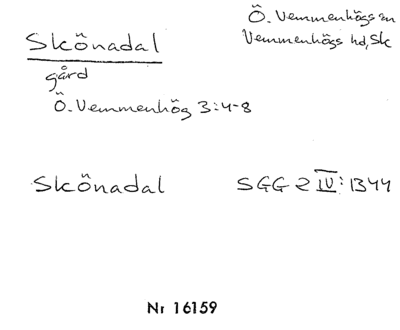 Skönadal
Ö. Vemmenhögs sn
Vemmenhögs hd, Sk
gård
Ö. Vemmenhög 3:4-8
Skönadal SGG 2 IV: 1344
Nr 16159